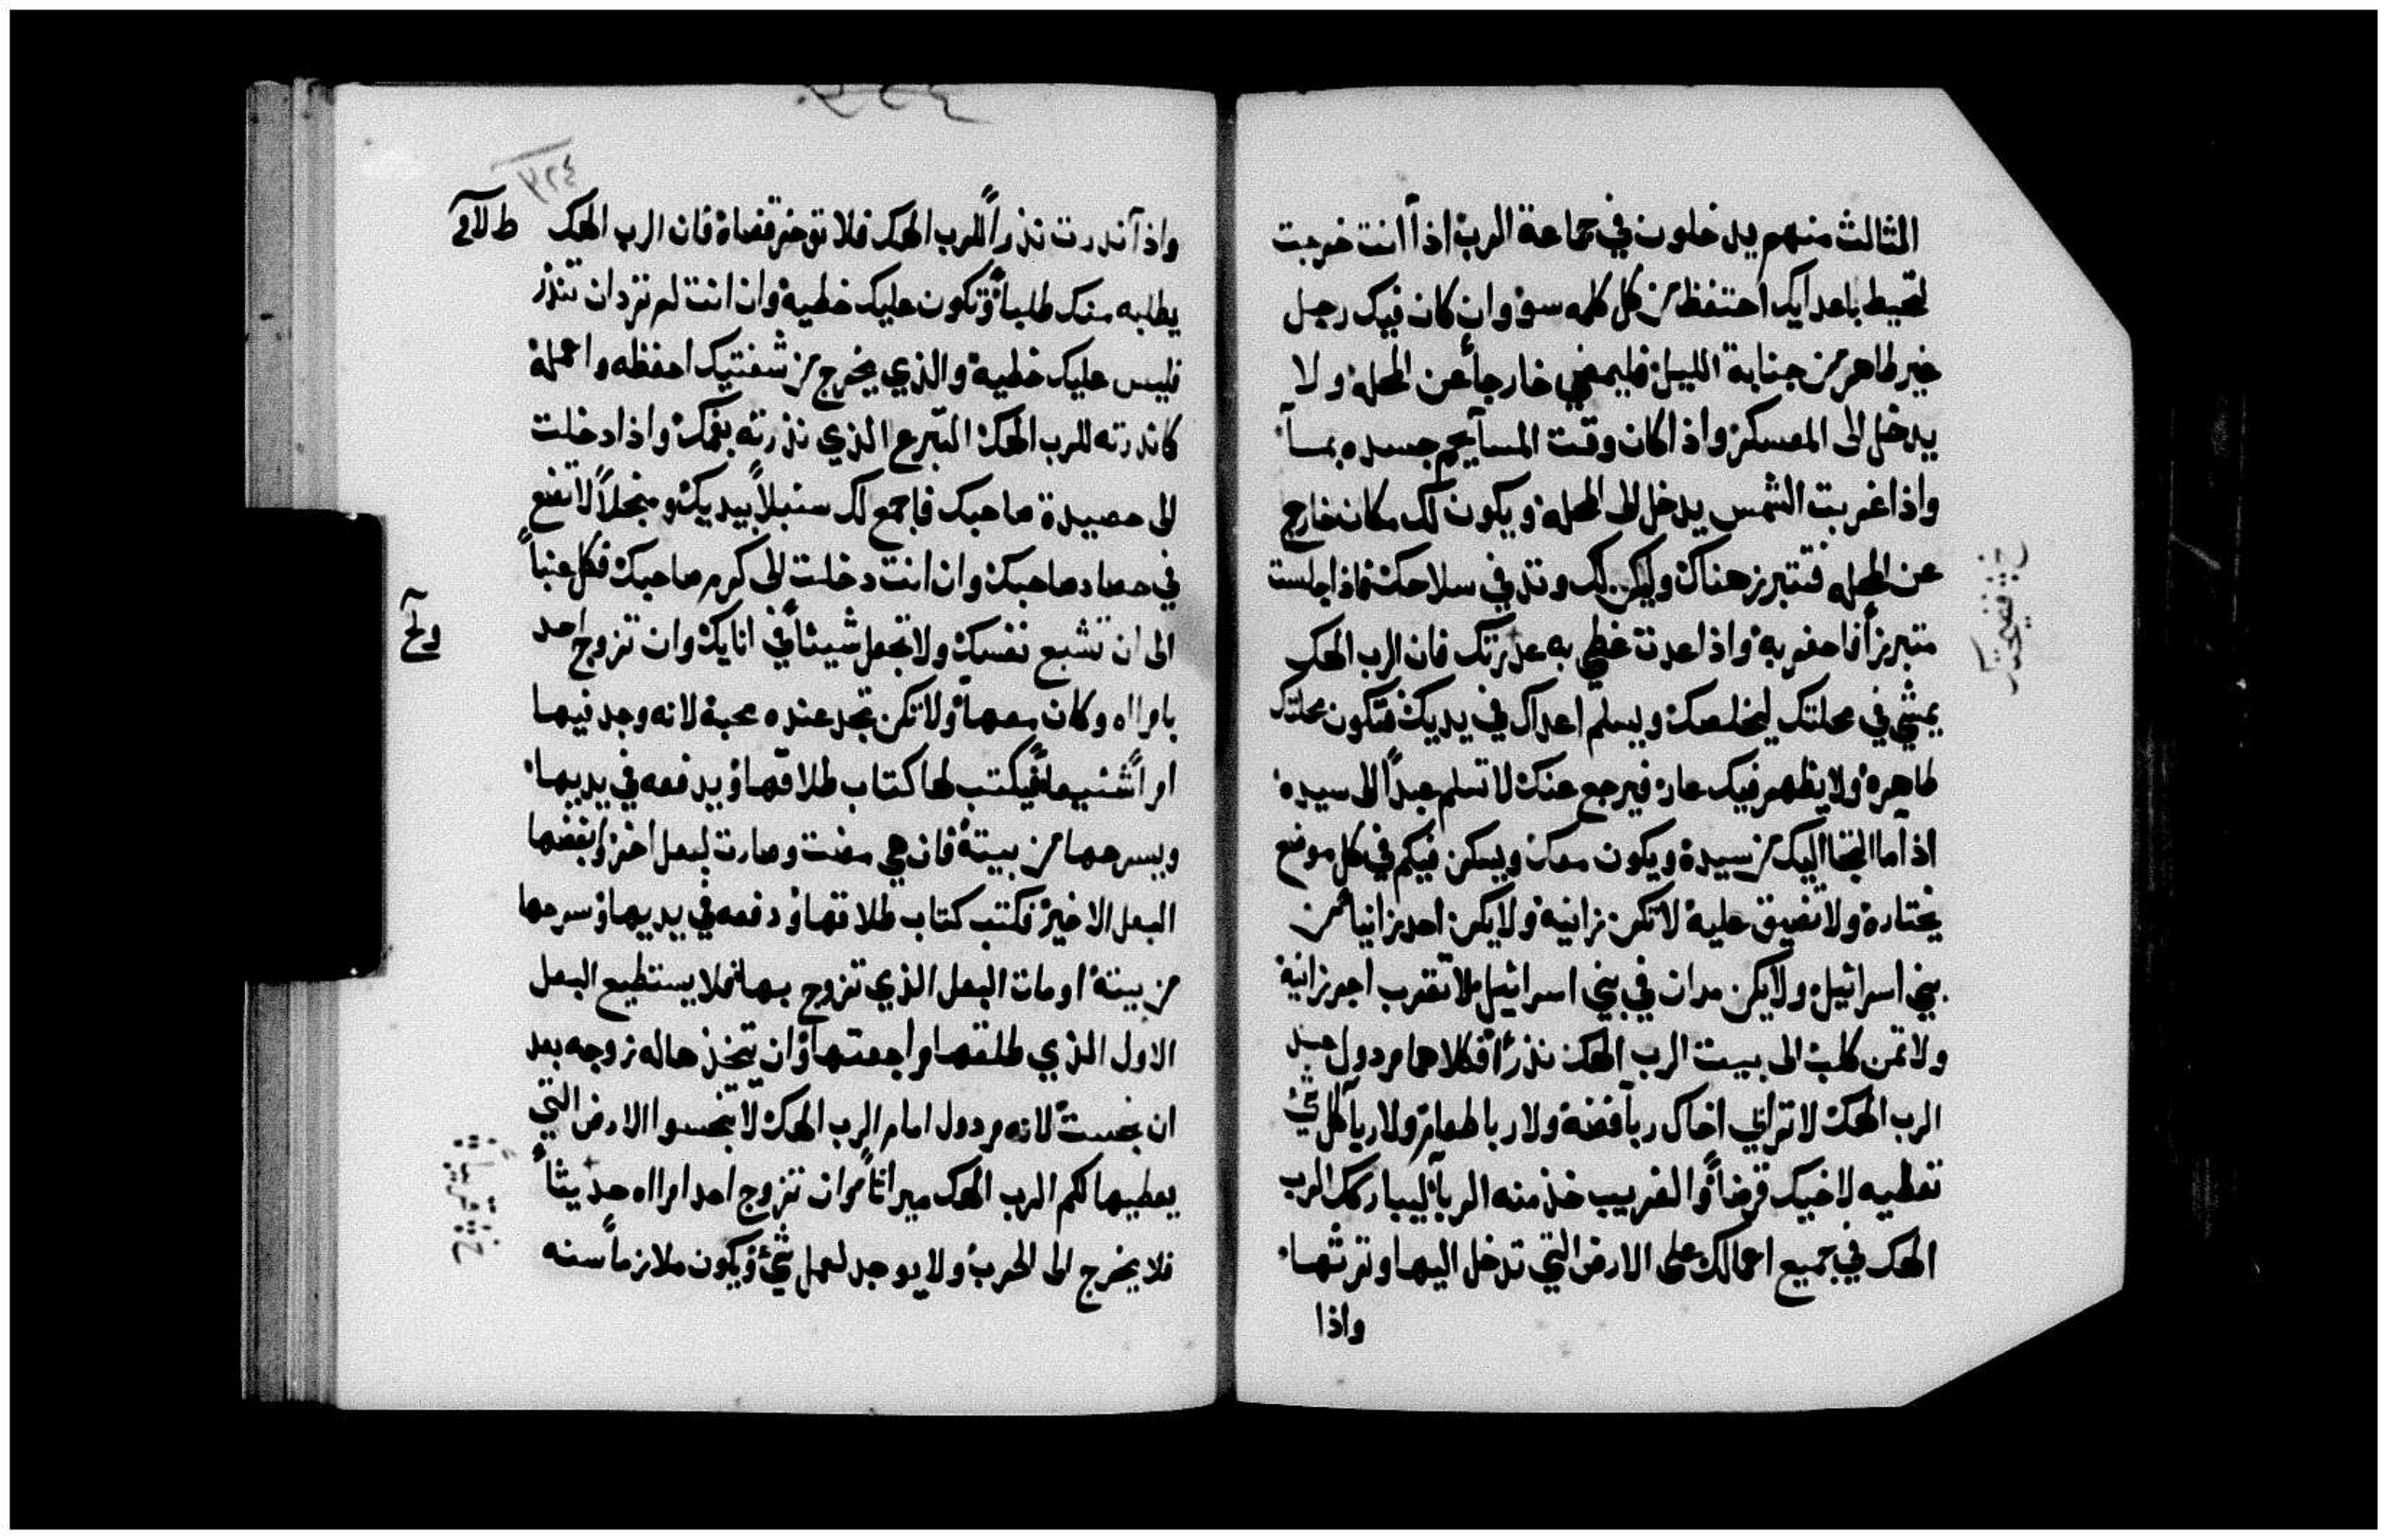 الثالث منهم يدخلون في جماعة الرب اذا انت خرجت
لتحيط باعدايك احتفظ من كل كلمه سوء وان كان فيك رجل
غير طاهر من جنابة الليل فليمضي خارجاً عن المحله ولا
يدخل الى المعسكر واذا كان وقت المسآ يحم جسده بمسآ
واذا غربت الشمس يدخل الى المحله ويكون لك مكان خارج
عن المحله فتتبرز هناك وليكن لك وتد في سلاحك فاذا جلست
متبرزاً فاحفر به واذا عدت غطي به عذرتك فان الرب الهك
يمشي في محلتك ليخلصك ويسلم اعداك في يديك فتكون محلتك
طاهرة ولا يظهر فيك عار فيرجع عنك لا تسلم عبداً الى سيده
اذا ما التجا اليك من سيده ويكون معك ويسكن فيكم في كل موضع
يختاره ولا تضيق عليه لا تكن زانية ولا يكن احد زانيا من
بني اسرائيل ولا يكن مدان في بني اسرائيل لا تقرب اجر زانية
ولا ثمن كلب الى بيت الرب الهك نذراً فكلاهما مردول عند
الرب الهك لا تراني اخاك ربا فضة ولا ربا طعام ولا ربا كل شئ
تعطيه لاخيك قرضاً والغريب خذ منه الربا ليباركك الرب
الهك في جميع اعمالك على الارض التي تدخل اليها وترثها
واذا
٣٢٤
واذا نذرت نذراً للرب الهك فلا توخر قضاه فان الرب الهك
يطلبه منك طلباً وتكون عليك خطية وان انت لم ترد ان تنذر
فليس عليك خطية والذي يخرج من شفتيك احفظه واعمله
كما نذرته للرب الهك التبرع الذي نذرته بفمك واذا دخلت
الى حصيدة صاحبك فاجمع لك سنبلاً بيديك ومنجلاً لا تضع
في حصاد صاحبك وان انت دخلت الى كرم صاحبك فكل عنباً
الى ان تشبع نفسك ولا تجعل شيئاً في انايك وان تزوج احد
بامراه وكان معها ولا تكن تجد عنده محبة لانه وجد فيها
امراً شنيعاً فيكتب لها كتاب طلاقها ويدفعه في يديها
ويسرحها من بيته فان هي مضت وصارت لبعل اخر وابغضها
البعل الاخير فكتب كتاب طلاقها ودفعه في يديها وسرحها
من بيته او مات البعل الذي تزوج بها فلا يستطيع البعل
الاول الذي طلقها مراجعتها وان يتخذها له زوجه بعد
ان نجست لانه مردول امام الرب الهك لا تنجسوا الارض التي
يعطيها لكم الرب الهك ميراثاً وان تزوج احد امراه حديثاً
فلا يخرج الى الحرب ولا يوجد لعمل شئ ويكون ملازماً سنه